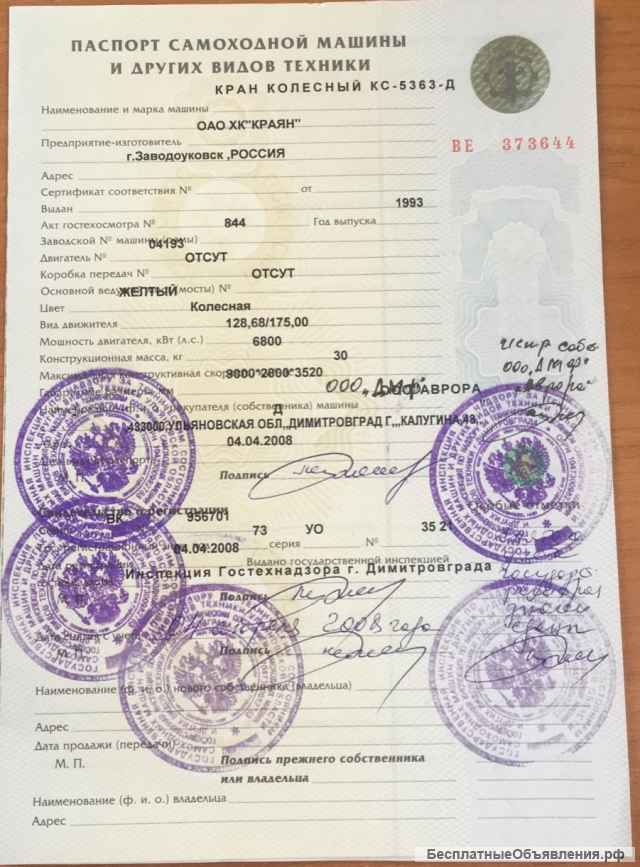 ПАСПОРТ САМОХОДНОЙ МАШИНЫ
И ДРУГИХ ВИДОВ ТЕХНИКИ
КРАН КОЛЕСНЫЙ КС-5363-Д
Наименование и марка машины
ОАО ХК"КРАЯН"
Предприятие-изготовитель
ВЕ 373644
г.Заводоуковск ,РОССИЯ
Адрес
Сертификат соответствия № от
Выдан
1993
Акт гостехосмотра № 844 Год выпуска
Заводской № машины (рамы)
04193
Двигатель № ОТСУТ
Коробка передач № ОТСУТ
Основной (мосты) №
ЖЕЛТЫЙ
Цвет Колесная
Вид движителя 128,68/175,00
Мощность двигателя, кВт (л.с.) 6800
Конструкционная масса, кг 30
конструктивная
9800*2800*3520
ООО „ДМФ"
АВРОРА
ООО „ДМФ"
Аврора"
покупателя (собственника) машины
Д
433000,УЛЬЯНОВСКАЯ ОБЛ,,ДИМИТРОВГРАД Г,,,КАЛУГИНА,43,
04.04.2008
М. П. Подпись
Особые отметки
Свидетельство о регистрации
ВК 956701
серия 73 УО № 35 21
04.04.2008
Выдано государственной инспекцией
Инспекция Гостехнадзора г. Димитровграда
Подпись
2008 года
Дата снятия с учета
М. П. Подпись
Наименование (ф. и. о.) нового собственника (владельца)
Адрес
Дата продажи (передачи)
М. П. Подпись прежнего собственника
или владельца
Наименование (ф. и. о.) владельца
Адрес
БесплатныеОбъявления.рф